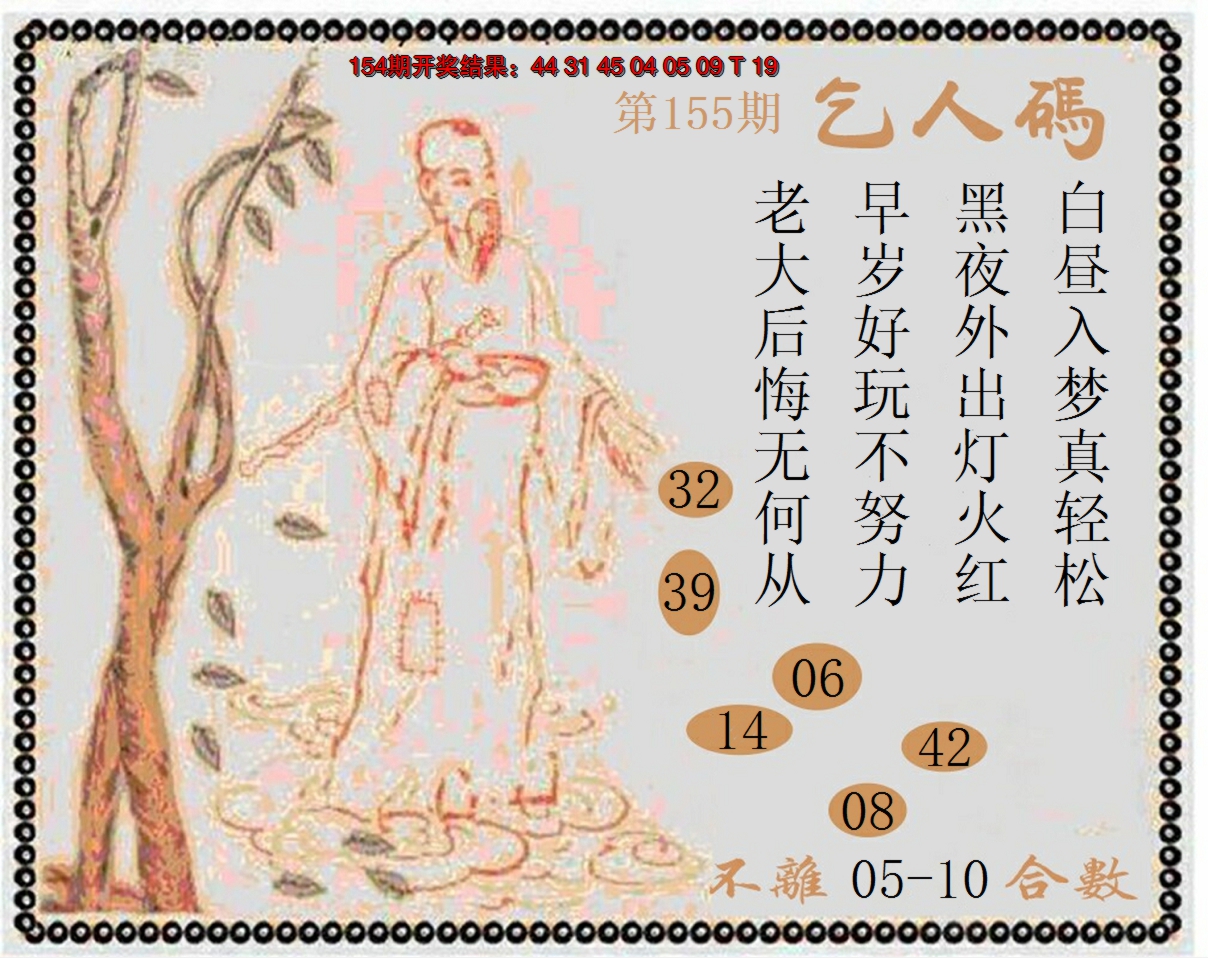 154期开奖结果：44 31 45 04 05 09 T 19
第155期
乞人碼
白昼入梦真轻松
黑夜外出灯火红
早岁好玩不努力
老大后悔无何从
32
39
06
14
42
08
不離 05-10 合數